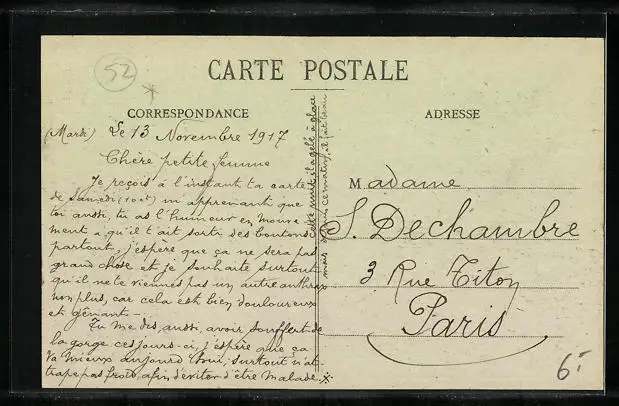 52
CARTE POSTALE
CORRESPONDANCE
(Mardi) Le 13 Novembre 1917
Chère petite femme
Je reçois à l'instant ta carte
de Samedi (10ct) m'apprenant que
toi aussi, tu as l'humeur en mouve
ment & qu'il t'ait sorti des boutons
partout, j'espère que ça ne sera pas
grand chose et je souhaite surtout
qu'il ne te viennes pas un autre anthrax
non plus, car cela est bien douloureux
et gênant.-
Tu me dis, aussi, avoir souffert de
la gorge ces jours-ci, j'espère que ça
va mieux aujourd'hui, surtout n'at-
trape pas froid, afin d'éviter d'être malade.
cette nuit il a gelé à glace
mais ce matin, il fait beau
ADRESSE
Madame
S. Dechambre
3 Rue Titon
Paris
6